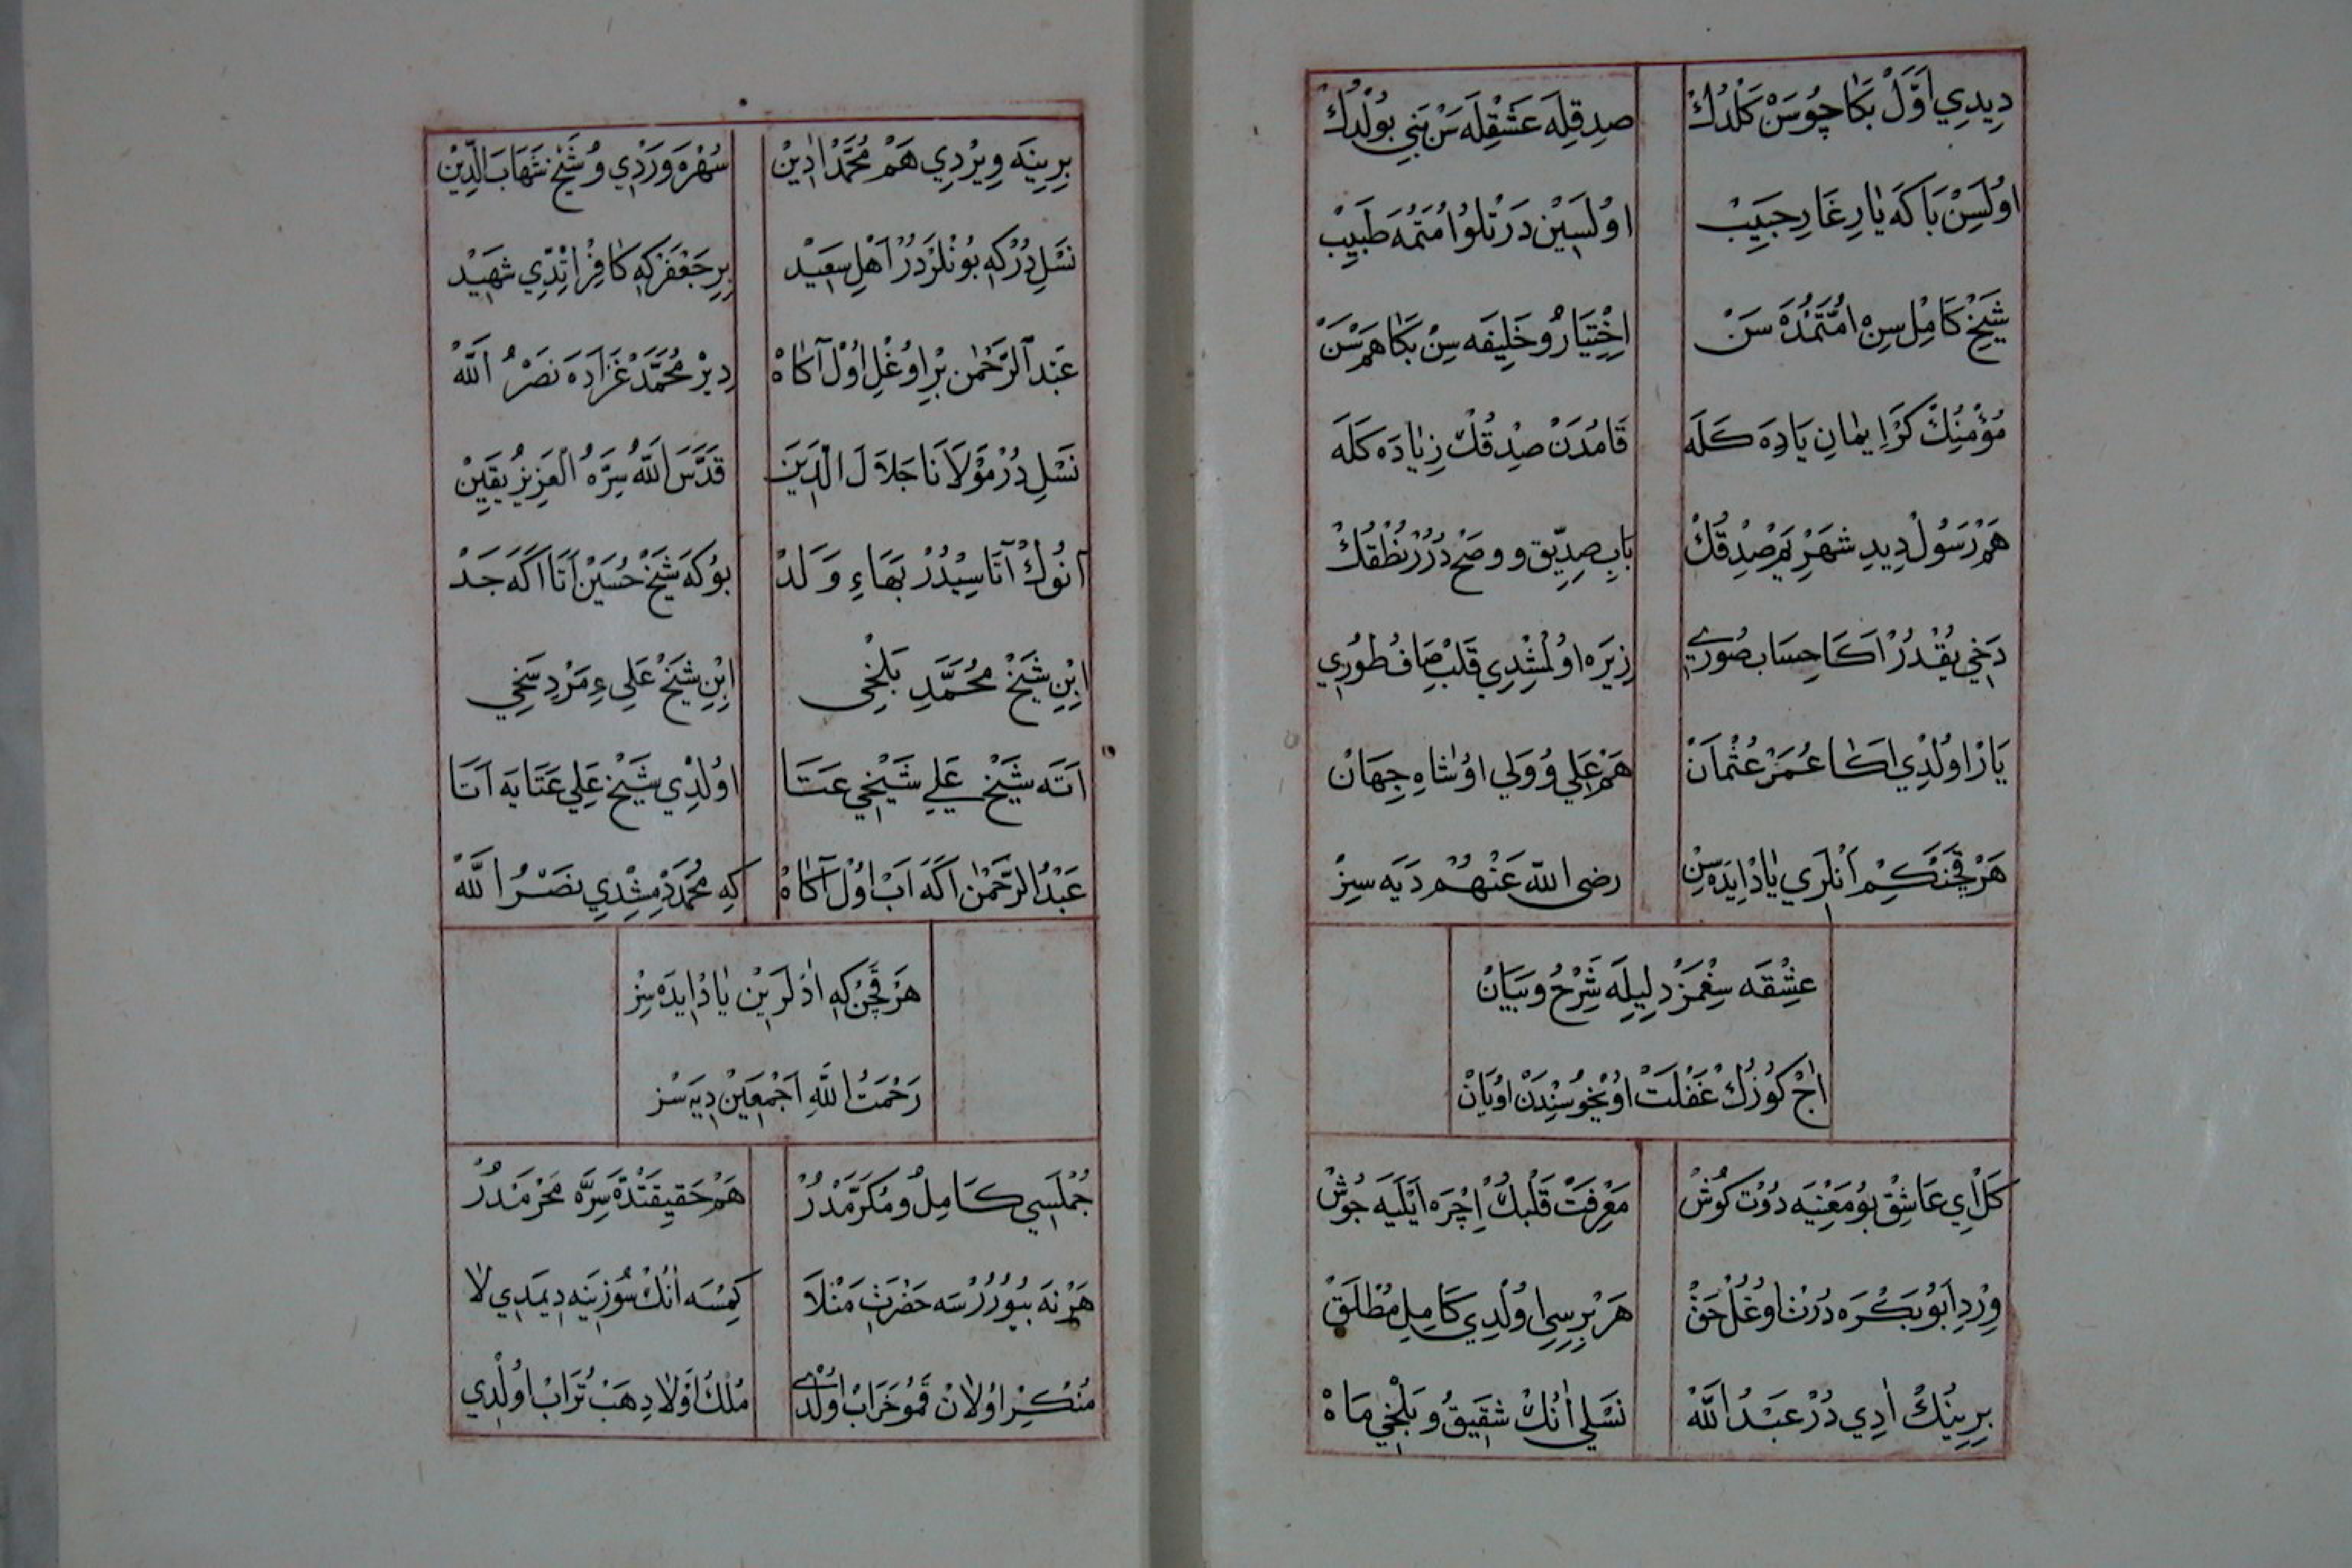 دِيدِي اَوَّلْ بَكَا چُوسَنْ كَلْدُكْ صِدقِلَه عَشْقِلَه سَنْ بَنِي بُولْدُكْ
اوُلْسِنْ بَاكَه يَارِ غَارِ حَبِيبْ اوُلَسِيْن دَرْتلُو اُمَّتْمَه طَبِيبْ
شَيْخِ كَامِلْ سِنْ اُمَّتَمْدَه سَنْ اِخْتِيَارُ وخَلِيفَه سِنْ بَكَا هَمْ سَنْ
مُؤْمِنُكْ كَرْ اِيمَانِ يَادِه كَلَه قَامُدَنْ صِدْقُكْ زِيَادَه كَلَه
هَمْ رَسُولْ دِيدِ شَهْرِ يَمْ صِدْقُكْ بَابِ صِدِّيق و وضَحْ دُرُرْ نُطْقُكْ
دَخِي يُقْدُرْ اَكَا حِسَاب صُورِي زِيرَه اوُلْمُشْدِي قَلْبِ صَاف طُورِي
يَارْ اوُلْدِي اَكَا عُمَرْ عُثْمَانْ هَمْ عَلِي وُ وَلِي اوُ شَاهِ جِهَانْ
هَرْ قَچَنْكِمْ اَنْلَرِي يَادْ اِيدَه سِنْ رضى الله عَنْهُمْ دَيَه سِيزْ
عِشْقَه سِغْمَزْ دِلِيلَه شَرْحُ وبَيَانْ
اَچْ كُوزُكْ غَفْلَتْ اوُيْخُوسُنْدَنْ اوُيَانْ
كَلْ اَي عَاشِقْ بُو مَعْنِيَه دُوُت كُوشْ مَعْرِفَتْ قَلْبِكْ اِچْرَه اَيْلَيَه جُوشْ
وِرْدِ اَبُو بَكْرَه دُرْتْ اوُغُلْ حَقْ هَرْ بِرِسِي اوُلْدِي كَامِلِ مُطْلَقْ
بِرِينُكْ اَدِي دُرْ عَبْدُ اللّٰه نَسْلِي اَنُكْ شَقِيقُ وبَلْخِي مَاهْ
بِرِينَه وِيرْدِي هَمْ مُحَمَّدْ اَدِينْ سُهْرَه وَرْدِي وُ شَيْخ شَهَابَ الدِّيْن
نَسْلِ دُرْكِه بُونْلَرْدُرْ اَهْلِ سَعِيدْ بِرِ جَعْفَرْكِه كَافِرْ اِتْدِّي شَهِيدْ
عَبْدُ الرَّحْمٰن بِرْ اوُغْلِ اوُلْ آكَاهْ دِيرْ مُحَمَّدْ غَزَادَه نَصْرُ اللّٰه
نَسْلِ دُرْ مَوْلَانَا جَلَالَ الدِّينَ قَدَّسَ اللّٰه سِرَّهُ الْعَزِيز يَقِينْ
اَنُوكْ آتَاسِيْدُرْ بَهَاءِ وَلَدْ بُوكَه شَيْخ حُسَيْن اَتَا اَكَه جَدْ
اِبْنِ شَيْخ مُحَمَّدِ بَلْخِى اِبْنِ شَيْخ عَلِيءِ مَرْدِ سَخِي
اَتَه شَيْخ عَلِي شَيْخِي عَتَا اوُلْدِي شَيْخ عَلِي عَتَايَه اَتَا
عَبْدُ الرَّحْمٰنْ اَكَه اَبْ اوُلْ آكَاهْ كِه مُحَمَّدْ دِمِشْدِي نَصْرُ اللّٰه
هَرْ قَچَنْ كِه اَدْلَرِين يَادْ اِيدَه سِزْ
رَحْمَتُ اللّٰهِ اَجْمَعِيْن دِيَه سْز
جُمْلَسِي كَامِلُ ومُكَرَّمْدُرْ هَمْ حَقِيقَتْدَه سِرَّه مَحْرَمْدُرْ
هَرْ نَه بِيُورُرْسَه حَضْرَتِ مَنْلَا كِمْسَه اَنُكْ سُوزِينَه دِيمَدِي لَا
مُنْكِرْ اوُلَانْ قَمُو خَرَابْ اوُلْدِي مُلْكُ اَوْلَادِ هَبْ تُرَابْ اوُلْدِي